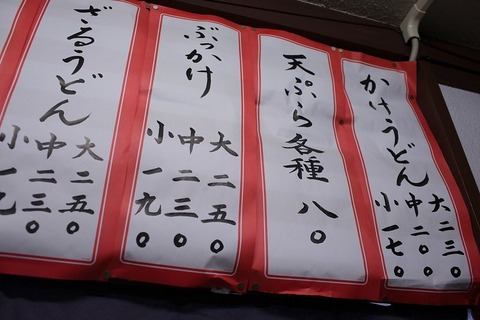 かけうどん
大二三〇
中二〇〇
小一七〇
天ぷら各種 八〇
ぶっかけ
大二五〇
中二三〇
小一九〇
ざるうどん
大二五〇
中二三〇
小一九